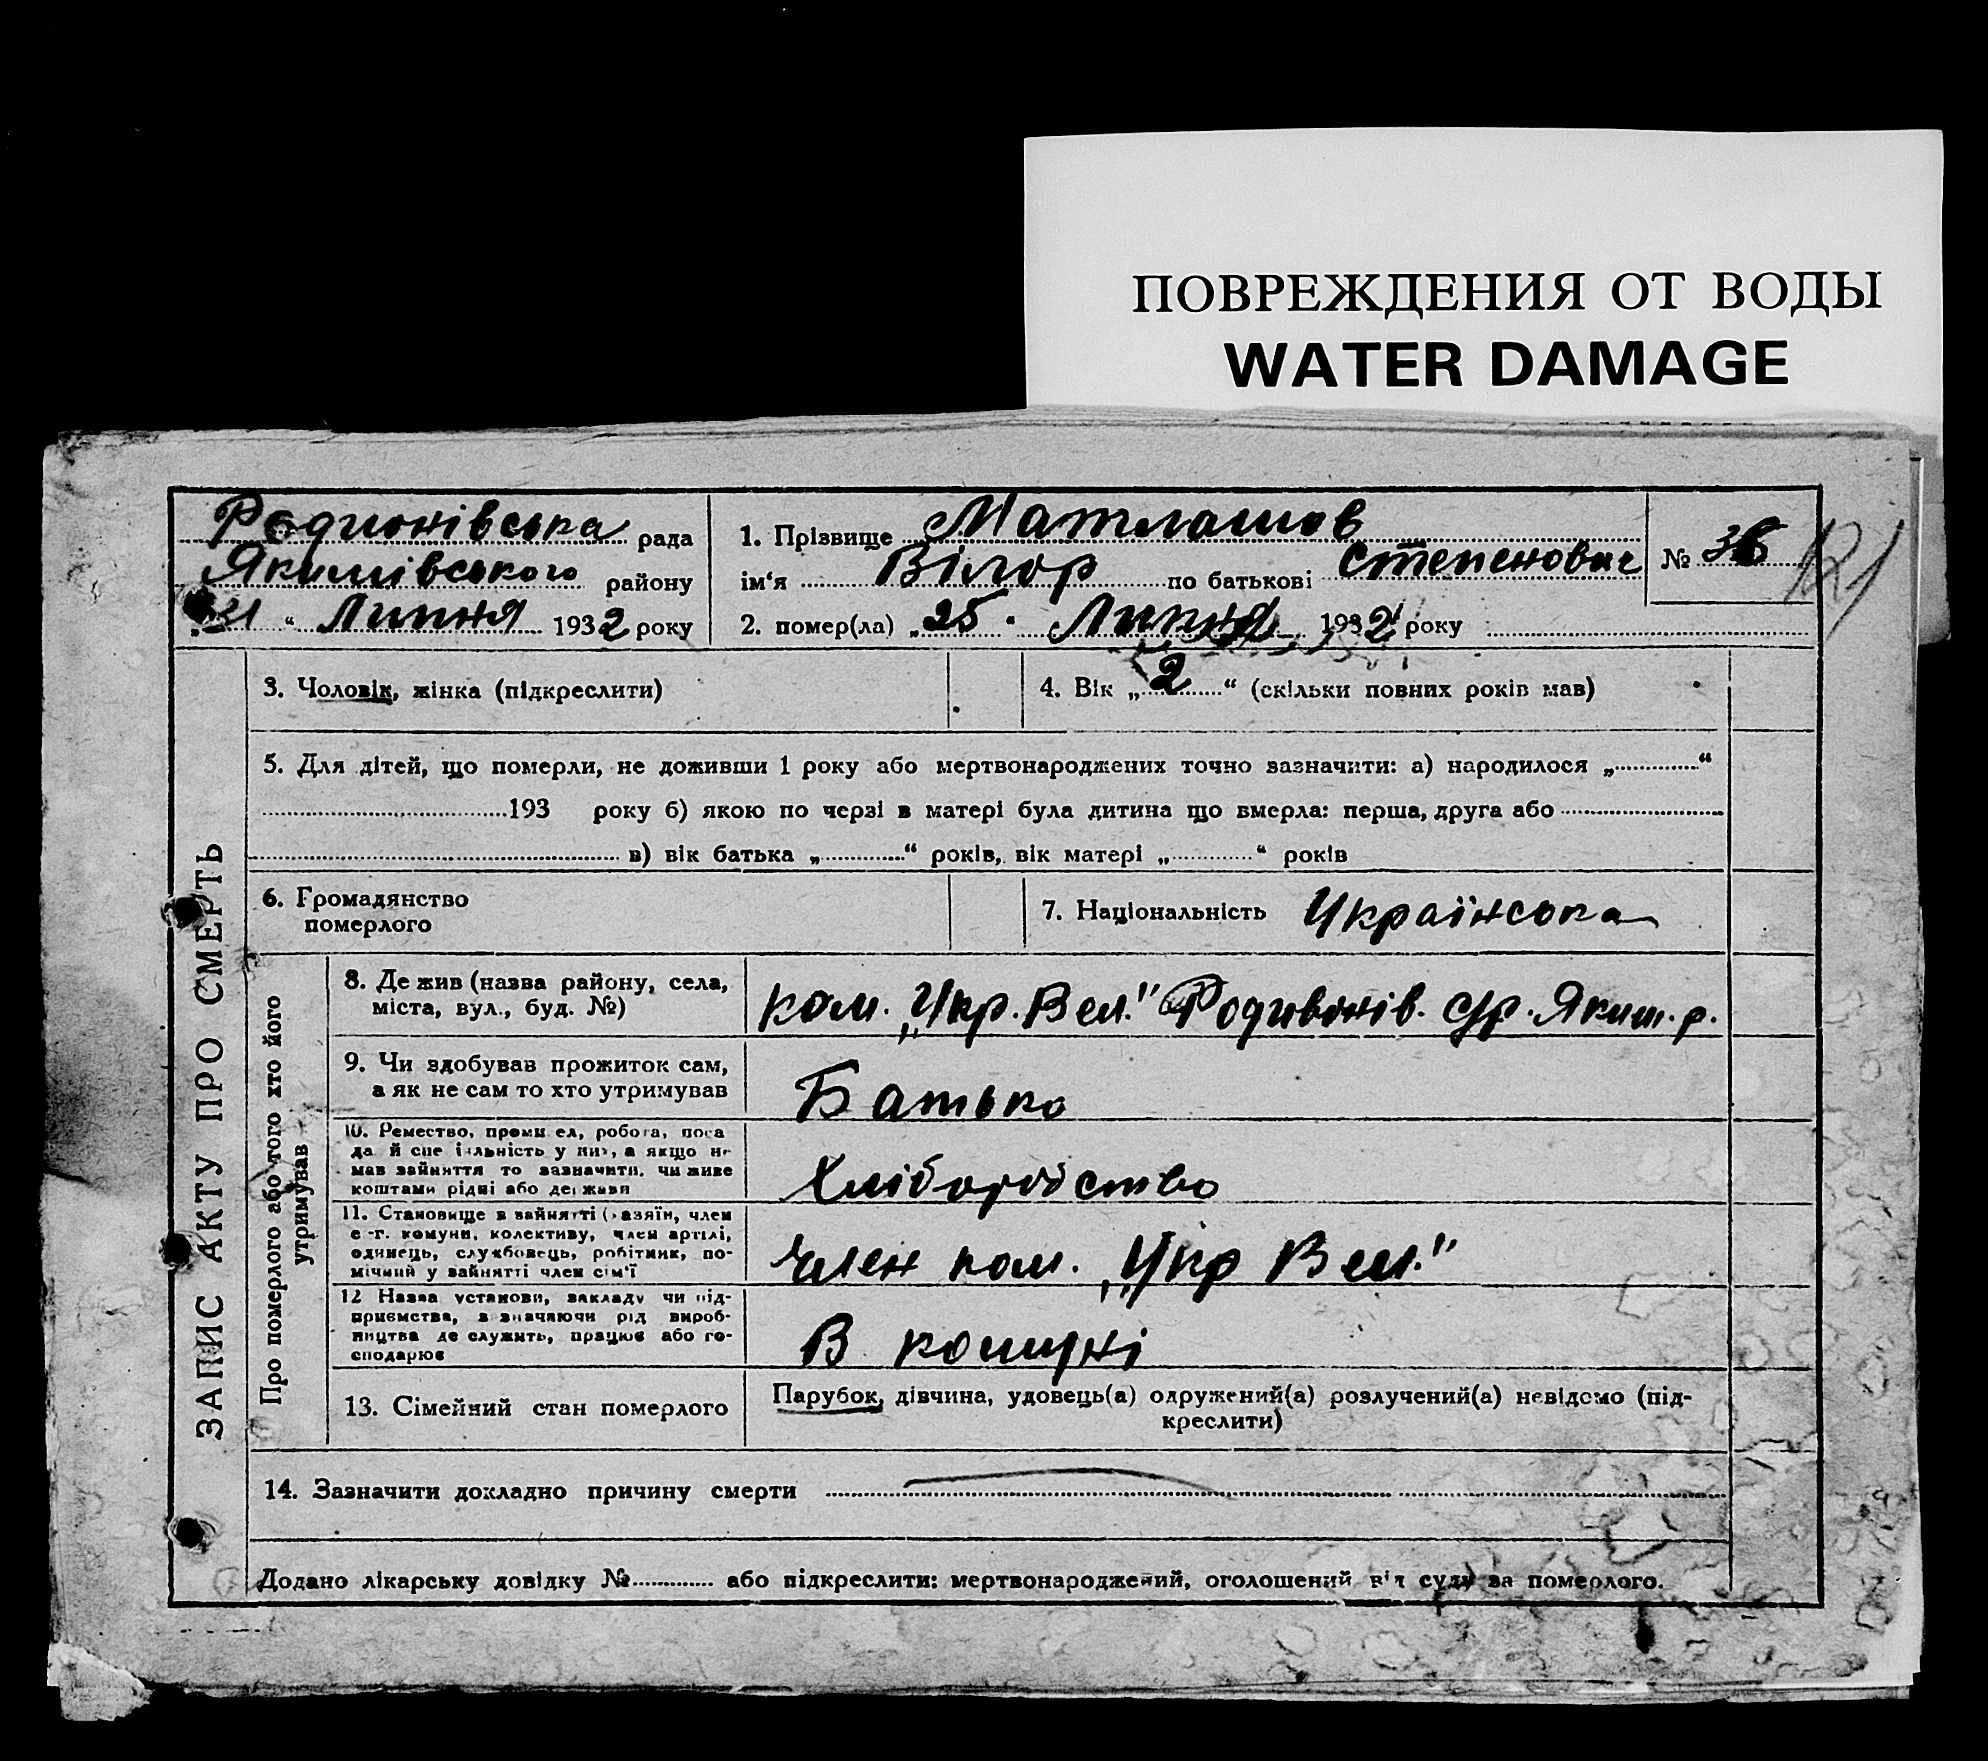 ПОВРЕЖДЕНИЯ ОТ ВОДЫ
WATER DAMAGE
Родионівська рада
Якимівського району
„31“ Липня 1932 року
1. Прізвище Матлашов
ім'я Вілор по батькові Степенович
2. помер(ла) „25“ Липня 1932 року
№ 36
121
ЗАПИС АКТУ ПРО СМЕРТЬ
3. Чоловік, жінка (підкреслити)
4. Вік „2“ (скільки повних років мав)
5. Для дітей, що померли, не доживши 1 року або мертвонароджених точно зазначити: а) народилося „..............“
193 року б) якою по черзі в матері була дитина що вмерла: перша, друга або
в) вік батька „..............“ років, вік матері „.............“ років
6. Громадянство
померлого
7. Національність Українська
Про померлого або того хто його
утримував
8. Де жив (назва району, села,
міста, вул., буд. №)
ком. „Укр. Вел." Родивонів. с/р. Яким. р.
9. Чи здобував прожиток сам,
а як не сам то хто утримував
Батько
10. Ремество, промисел, робота, поса
да й спеціяльність у них, а якщо не
мав зайняття то зазначити, чи живе
коштами рідні або держави
Хліборобство
11. Становище в зайнятті (хазяїн, член
с.-г. комуни, колективу, член артілі,
одинець, службовець, робітник, по-
мічний у зайнятті член сім'ї
Член ком. „Укр Вел."
12 Назва установи, закладу чи під-
приємства, зазначаючи рід вироб-
ництва де служить, працює або го-
сподарює
В комуні
13. Сімейний стан померлого
Парубок, дівчина, удовець(а) одружений(а) розлучений(а) невідомо (під-
креслити)
14. Зазначити докладно причину смерти
Додано лікарську довідку №............. або підкреслити: мертвонароджений, оголошений від суду за померлого.